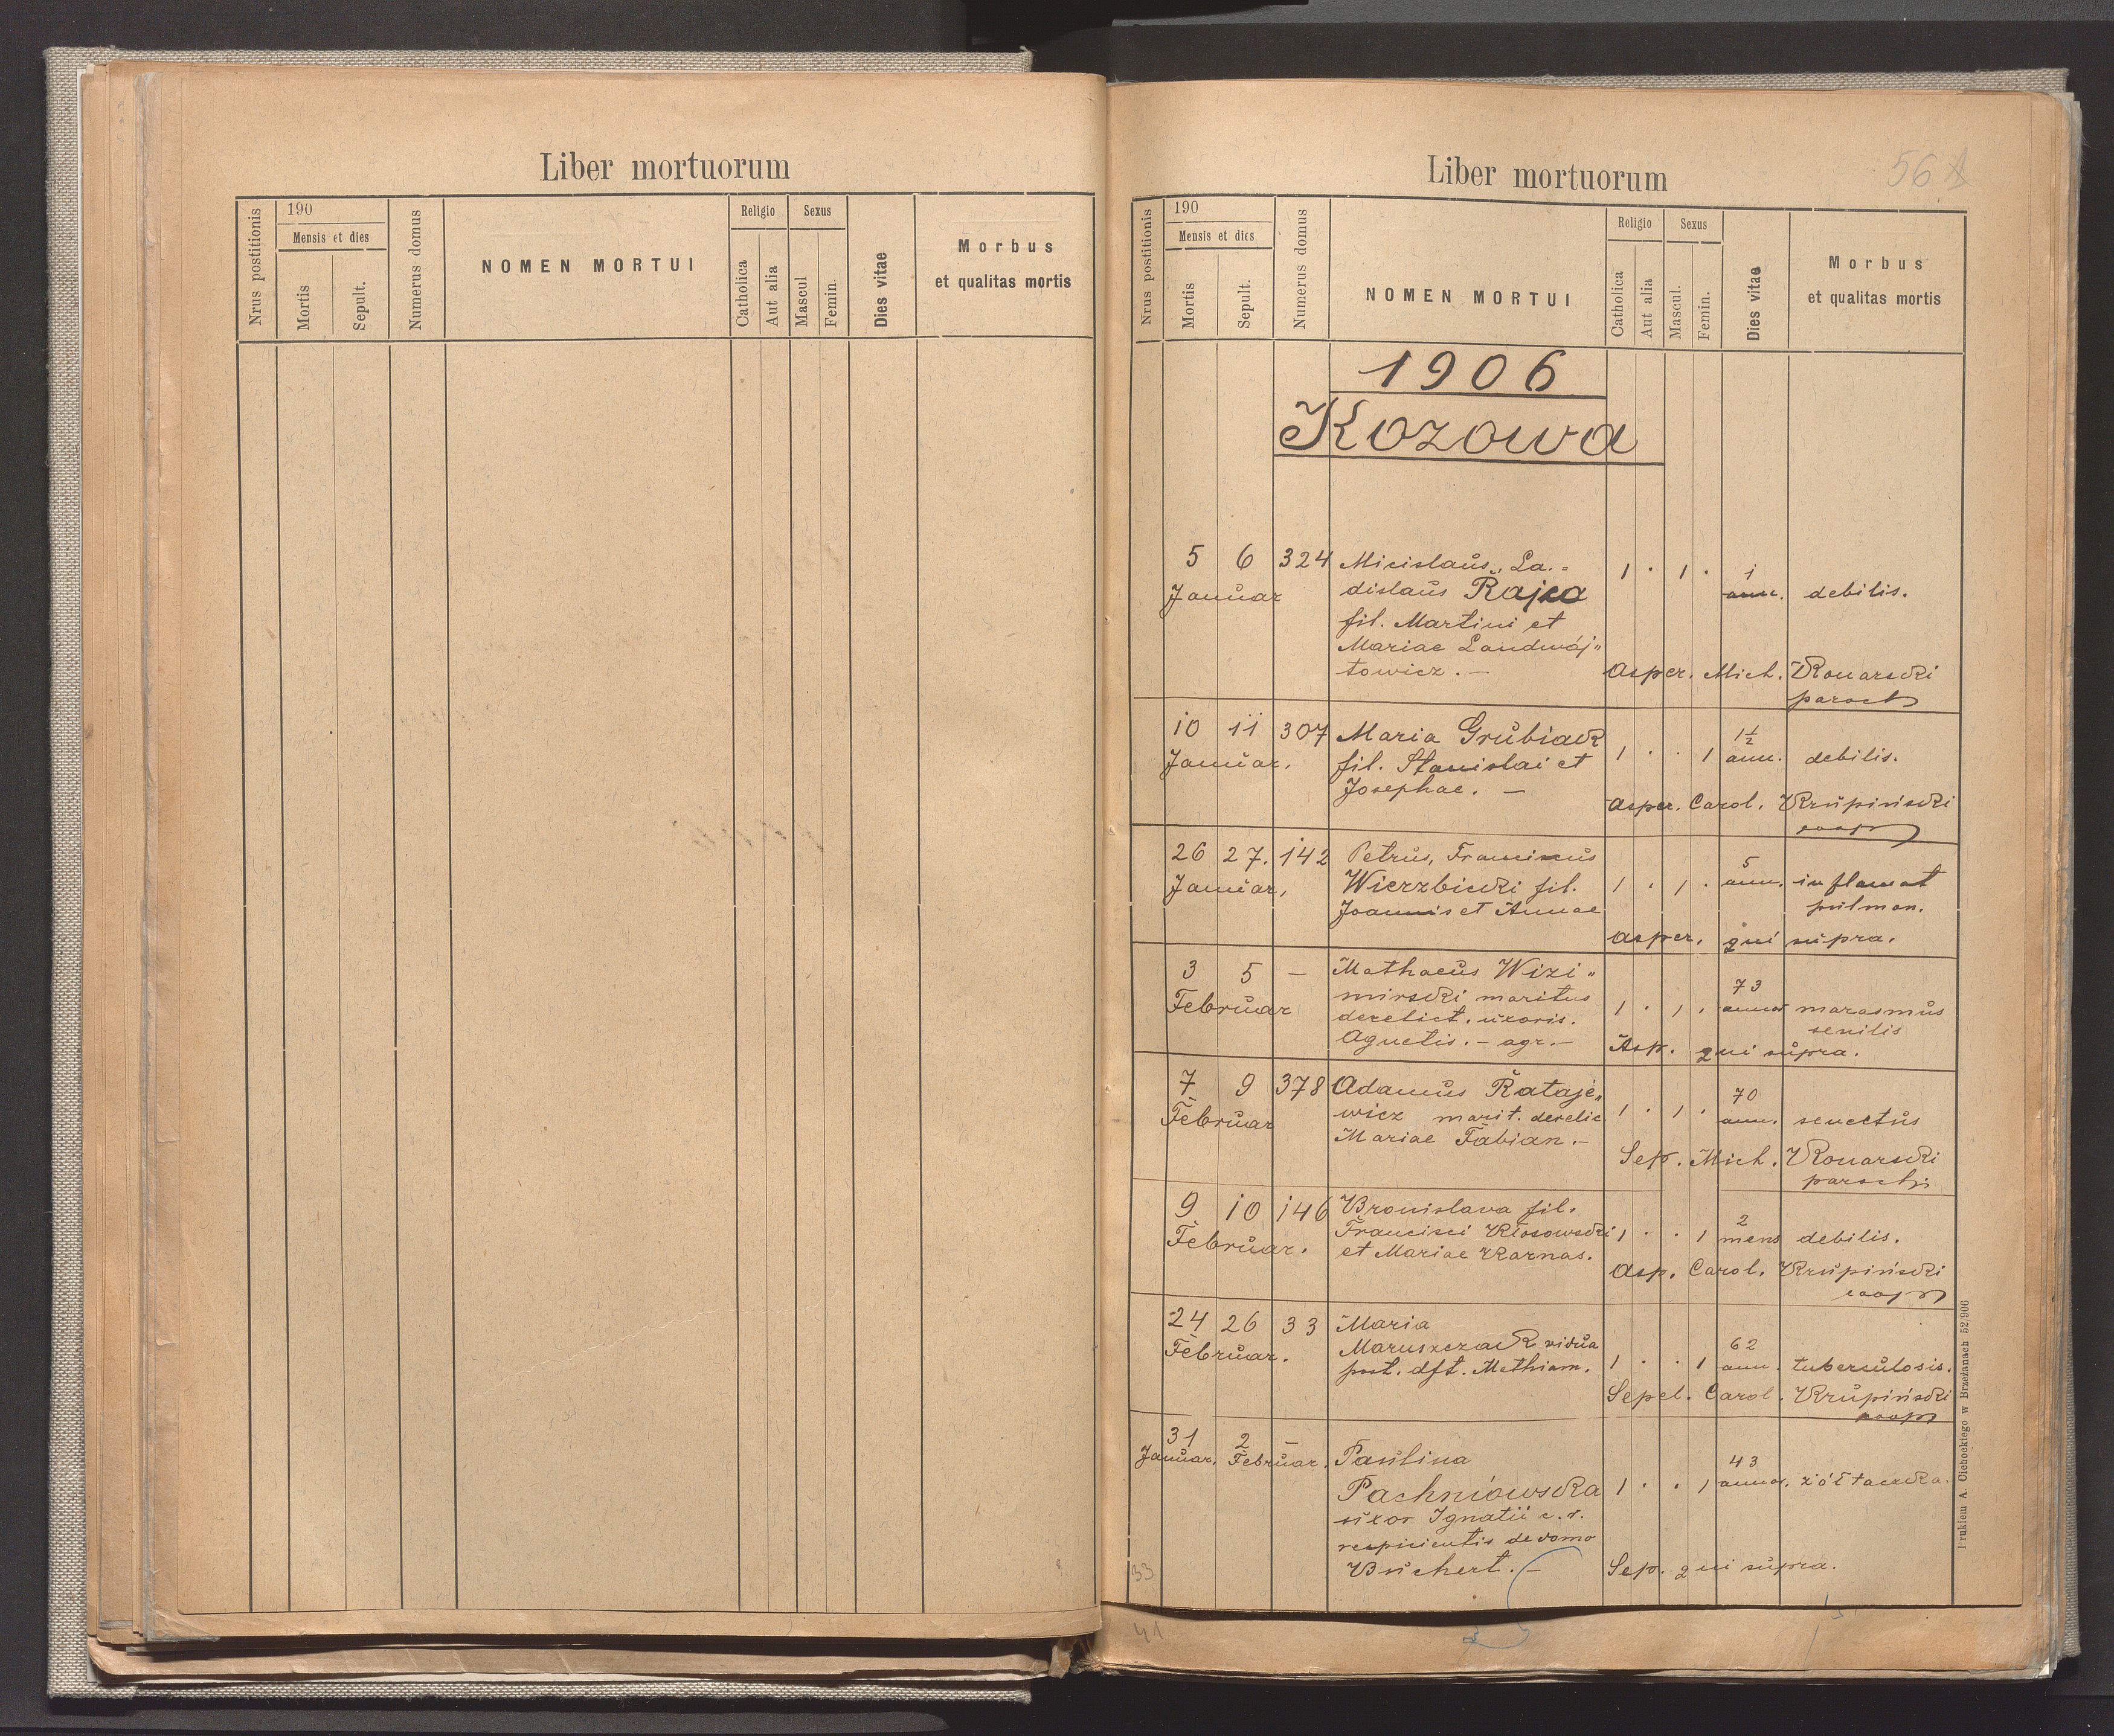 Liber mortuorum
Nrus postitionis
190
Mensis et dies
Mortis
Sepult.
Numerus domus
NOMEN MORTUI
Religio
Catholica
Aut alia
Sexus
Mascul
Femin.
Dies vitae
Morbus
et qualitas mortis
Liber mortuorum
56
Nrus postitionis
190
Mensis et dies
Mortis
Sepult.
Numerus domus
NOMEN MORTUI
Religio
Catholica
Aut alia
Sexus
Mascul.
Femin.
Dies vitae
Morbus
et qualitas mortis
1906
Kozowa
5 6 324 Micislaus, La-
Januar dislaus Rajca 1 · 1 · 1 ann. debilis.
fil. Martini et
Mariae Landwój"
towicz. — Asper. Mich. Konarski
paroch
10 11 307 Maria Grubiak
Januar. fil. Stanislai et 1 · · 1 1½ ann. debilis.
Josephae. — Asper. Carol. Krupiński
coop
26 27. 142 Petrus, Franciscus
Januar, Wierzbicki fil. 1 · 1 · 5 ann. inflamat
Joannis et Annae pulmon.
Asper. qui supra.
3 5 — Mathaeus Wizi"
Februar mirski maritus 1 · 1 · 73 annor marasmus
derelict. uxoris. senilis
Agnetis. — agr. — Asp. qui supra.
7 9 378 Adamus Rataje"
Februar wicz marit. derelic 1 · 1 · 70 ann. senectus
Mariae Fabian. —
Sep. Mich. Konarski
paroch
9 10 146 Bronislava fil.
Februar. Francisci Kłosowski 1 · · 1 2 mens debilis.
et Mariae Karnas.
Asp. Carol. Krupiński
coop
24 26 33 Maria
Februar. Maruszczak vidua
post. dft. Mathiam. 1 · · 1 62 ann. tuberculosis.
Sepel. Carol. Krupiński
coop
31 2 —
Januar. Februar. Paulina
Pachniowska 1 · · 1 43 annor. żółtaczka.
uxor Ignatii c. r.
respicientis de domo
Buchert. — Sep. qui supra.
33
41
Drukiem A Cichockiego w Brzeżanach 52,906